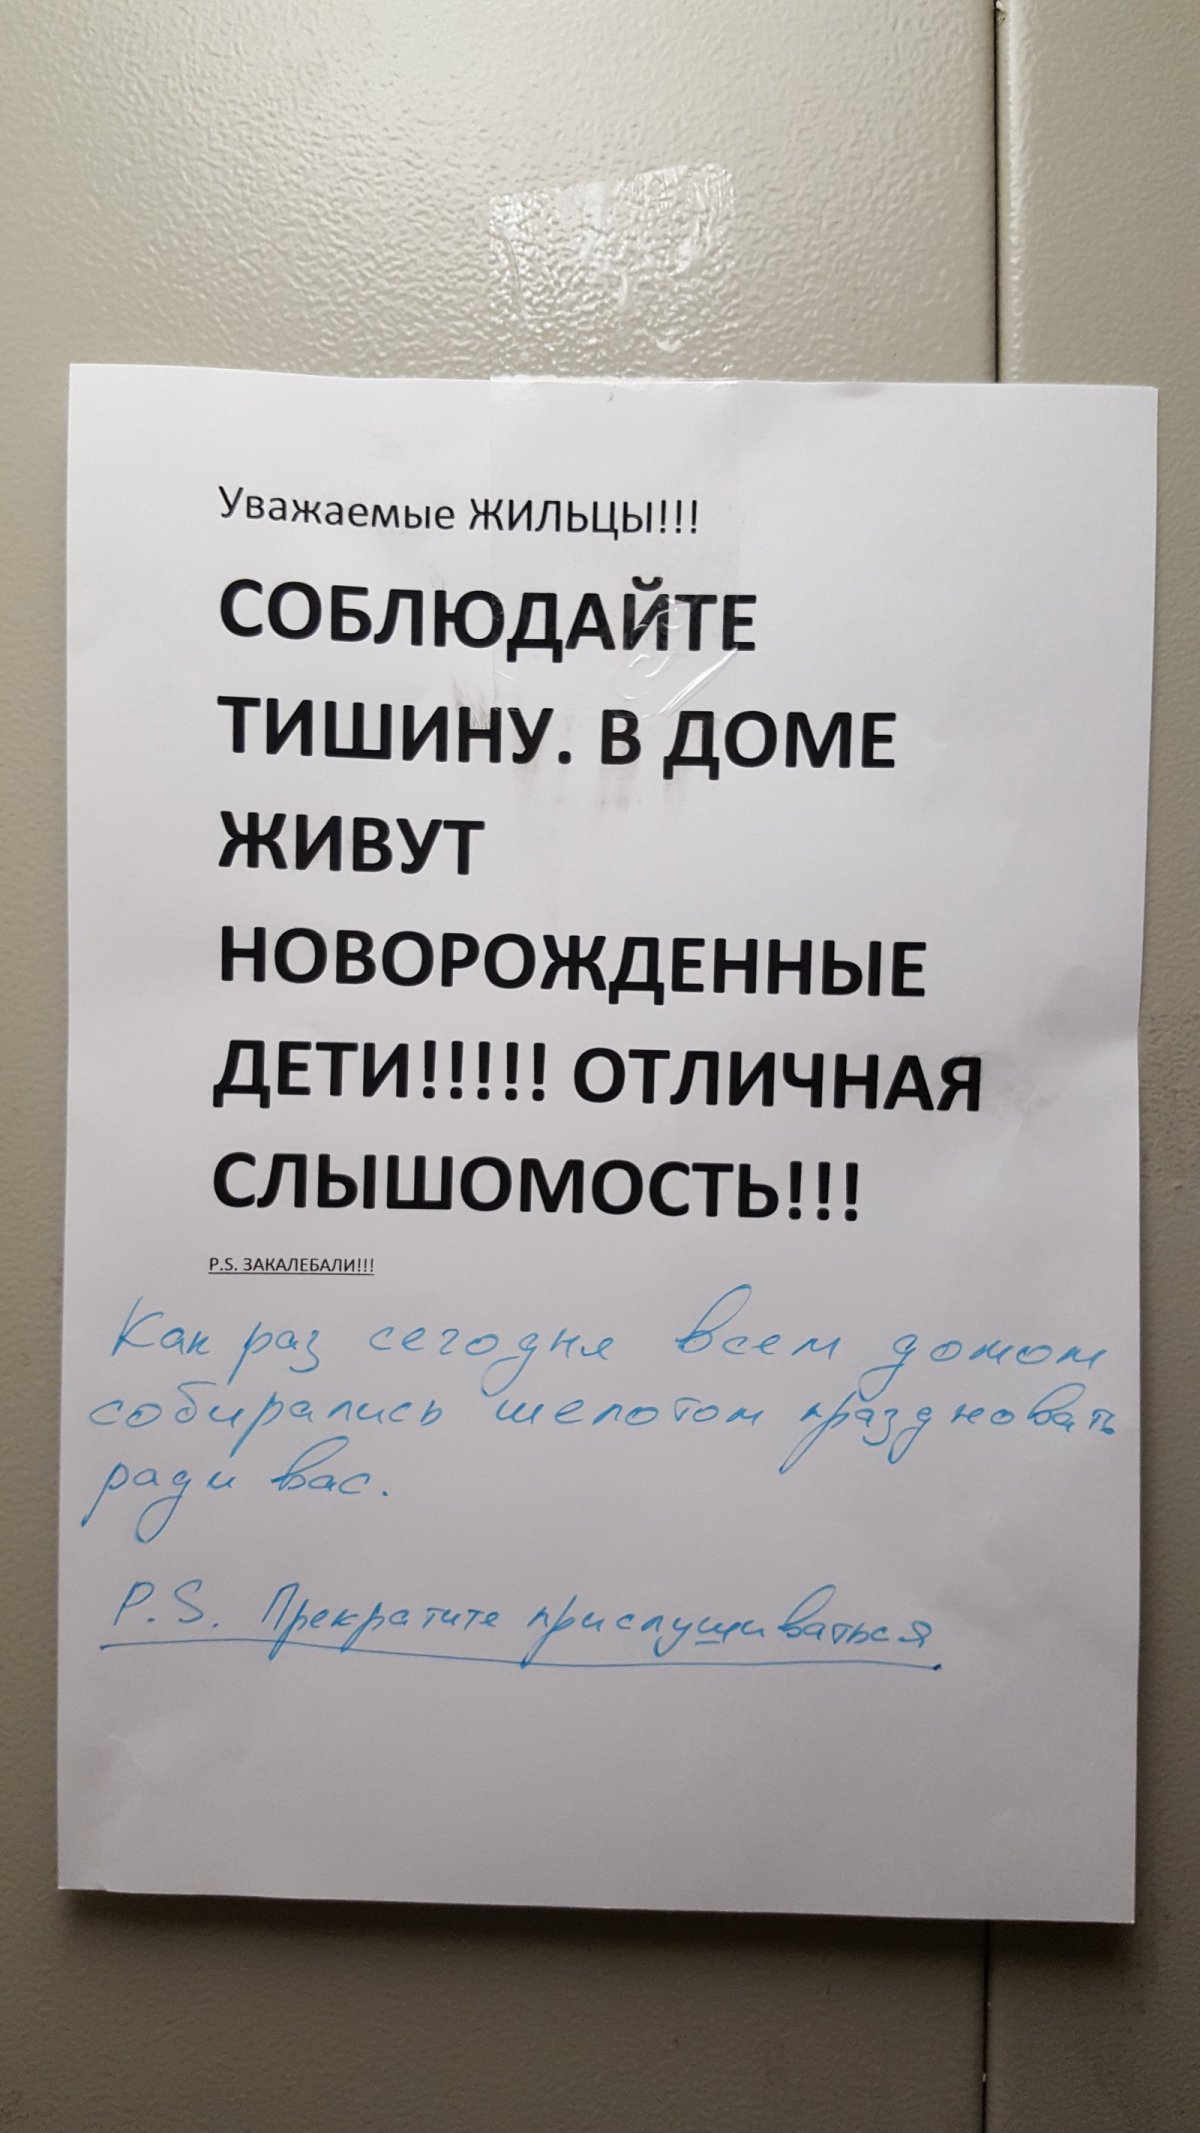 Уважаемые ЖИЛЬЦЫ!!!
СОБЛЮДАЙТЕ
ТИШИНУ. В ДОМЕ
ЖИВУТ
НОВОРОЖДЕННЫЕ
ДЕТИ!!!!! ОТЛИЧНАЯ
СЛЫШОМОСТЬ!!!
P.S. ЗАКАЛЕБАЛИ!!!
Как раз сегодня всем домом
собирались шепотом праздновать
ради вас.
P.S. Прекратите прислушиваться